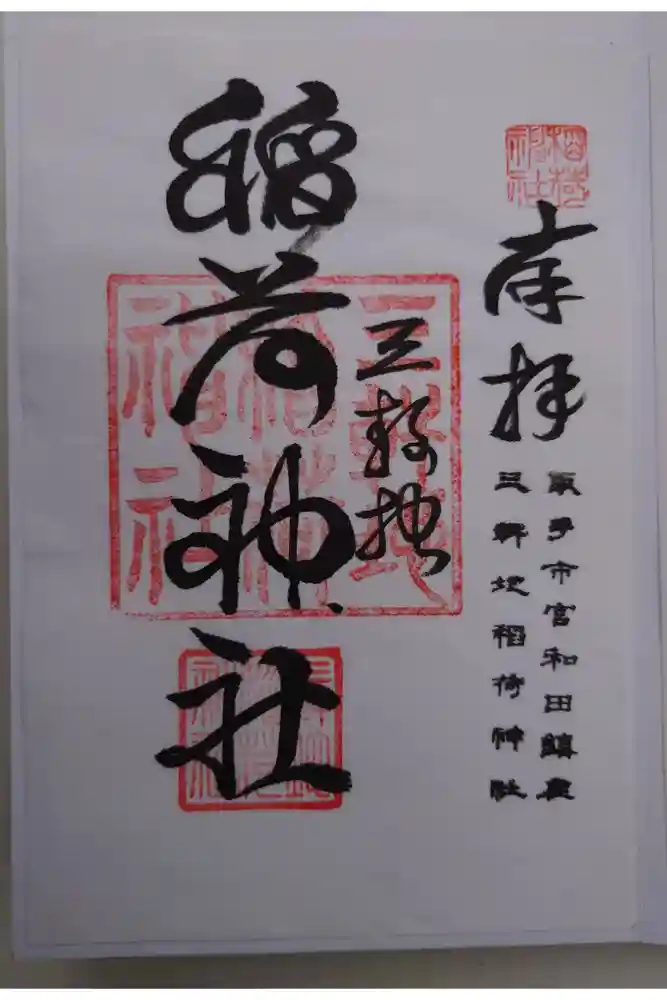 奉拝
取手市宮和田鎮座
三軒地稲荷神社
三軒地
稲荷神社
三軒地稲荷神社